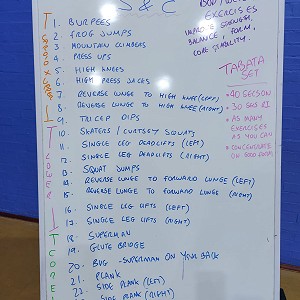 S & C
EXERCISES
IMPROVE STRENGTH,
BALANCE, FORM,
CORE STABILITY.
1. BURPEES
2. FROG JUMPS
3. MOUNTAIN CLIMBERS
4. PRESS UPS
5. HIGH KNEES
6. HIGH PRESS JACKS
7. REVERSE LUNGE TO HIGH KNEE (LEFT)
8. REVERSE LUNGE TO HIGH KNEE (RIGHT)
9. TRICEP DIPS
10. SKATERS / CURTSEY SQUATS
11. SINGLE LEG DEADLIFTS (LEFT)
12. SINGLE LEG DEADLIFTS (RIGHT)
13. SQUAT JUMPS
14. REVERSE LUNGE TO FORWARD LUNGE (LEFT)
15. REVERSE LUNGE TO FORWARD LUNGE (RIGHT)
16. SINGLE LEG LIFTS (LEFT)
17. SINGLE LEG LIFTS (RIGHT)
18. SUPERMAN
19. GLUTE BRIDGE
20. BUG - SUPERMAN ON YOUR BACK
21. PLANK
22. SIDE PLANK (LEFT)
SIDE PLANK (RIGHT)
TABATA
SET
40 SECS ON
30 SECS
AS MANY
EXERCISES
AS YOU CAN
CONCENTRATE
ON GOOD FORM
LOWER
CORE